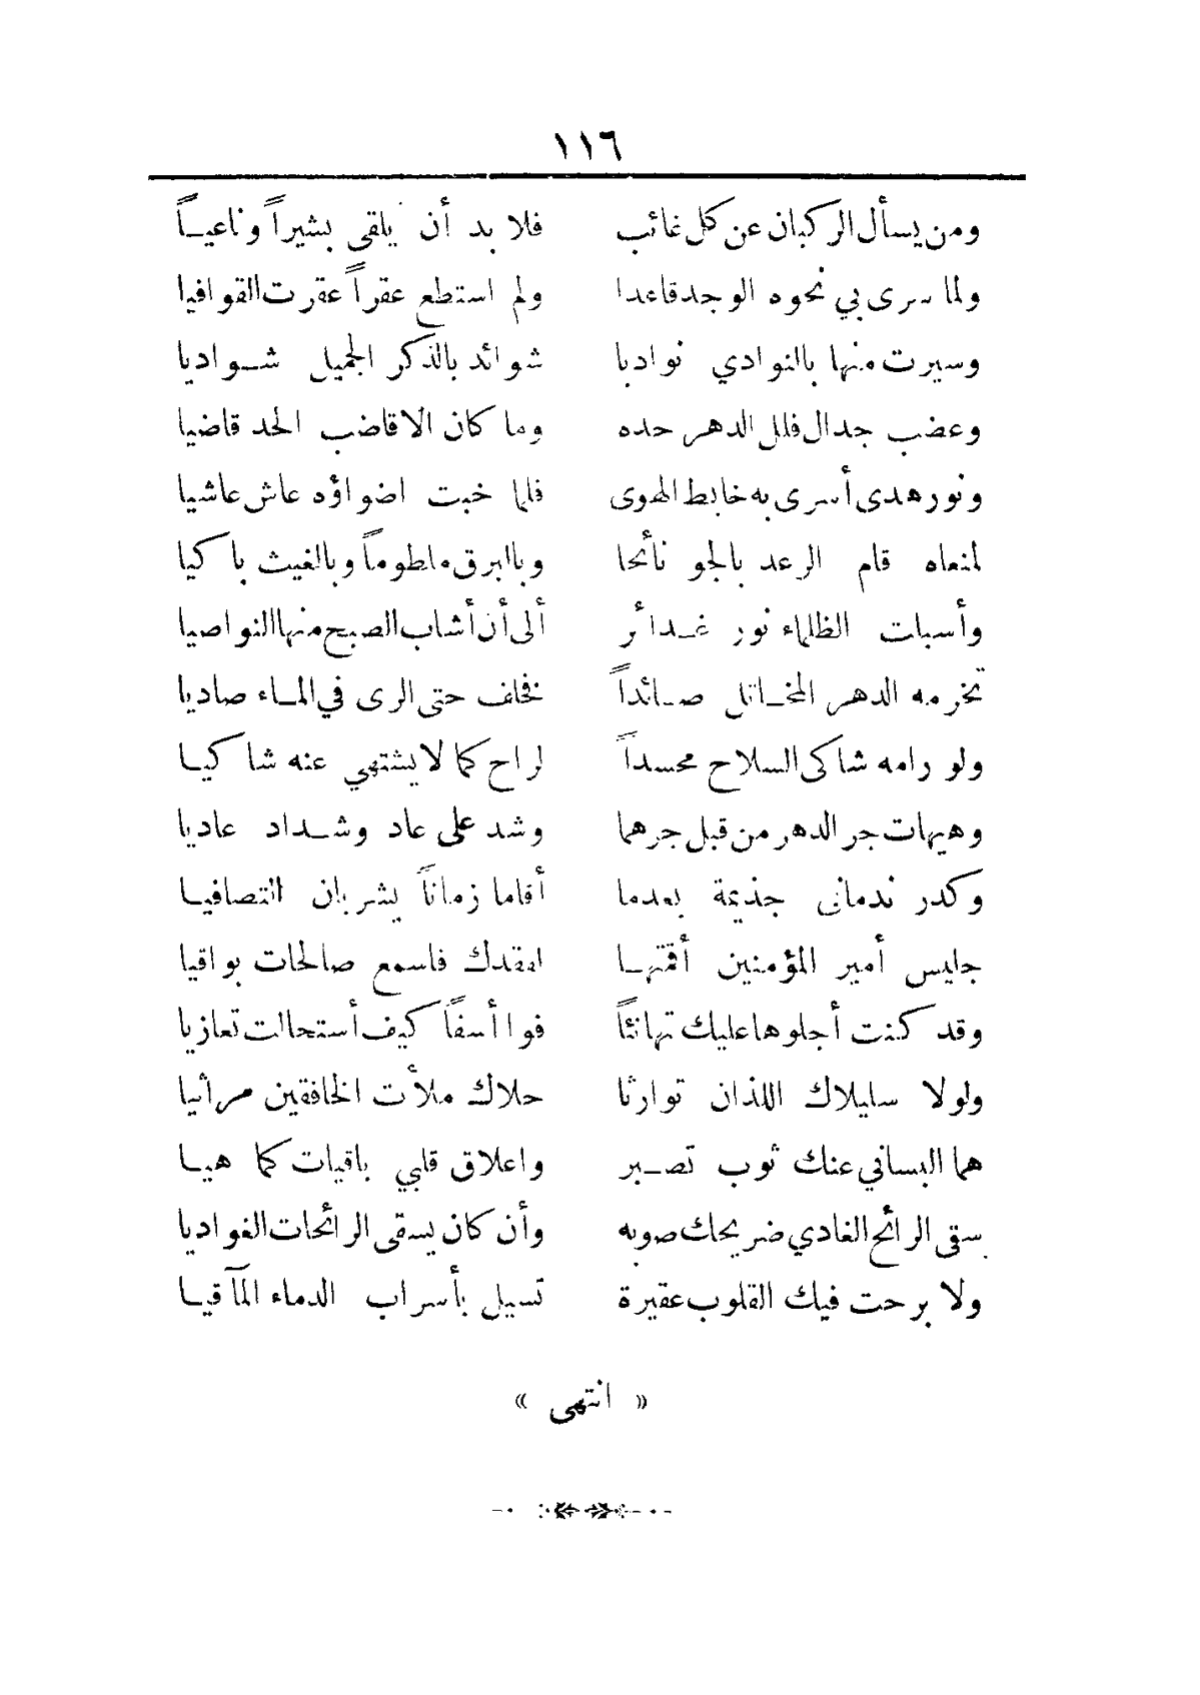 ١١٦
ومن يسأل الركبان عن كل غائب فلا بد أن يلقى بشيراً وناعيــاً
ولما سرى بي نحوه الوجد قاعدا ولم استطع عقراً عقرت القوافيا
وسيرت منها بالنوادي نوادبا شوائد بالذكر الجميل شــواديا
وعضب جدال فلل الدهر حده وما كان الا قاضب الحد قاضيا
ونور هدى أسرى به خابط الهوى فلما خبت اضواؤه عاش عاشيا
لمنعاه قام الرعد بالجو نائحا وبالبرق ملطوماً وبالغيث باكيا
وأسبات الظلماء نور غــدائر ألى أن أشاب الصبح منها النواصيا
تخرمه الدهر المخــاتل صــائداً فخلف حتى الرى في المــاء صاديا
ولو رامه شاكى السلاح محسداً لراح كما لا يشتهي عنه شاكيــا
وهيهات جر الدهر من قبل جرهما وشد على عاد وشــداد عاديا
وكدر ندمانى جذيمة بعدما أقاما زماناً يشربان التصافيــا
جليس أمير المؤمنين أقمتهــا لفقدك فاسمع صالحات بواقيا
وقد كنت أجلوها عليك تهانئاً فوا أسفاً كيف أستحالت تعازيا
ولولا سليلاك اللذان توارثا حلاك ملأت الخافقين مراثيا
هما البساني عنك ثوب تصــبر واعلاق قلبي باقيات كما هيــا
سقى الرائح الغادي ضريحك صوبه وأن كان يسقى الرائحات الغواديا
ولا برحت فيك القلوب عقيرة تسيل بأسراب الدماء المآقيــا
« انتهى »